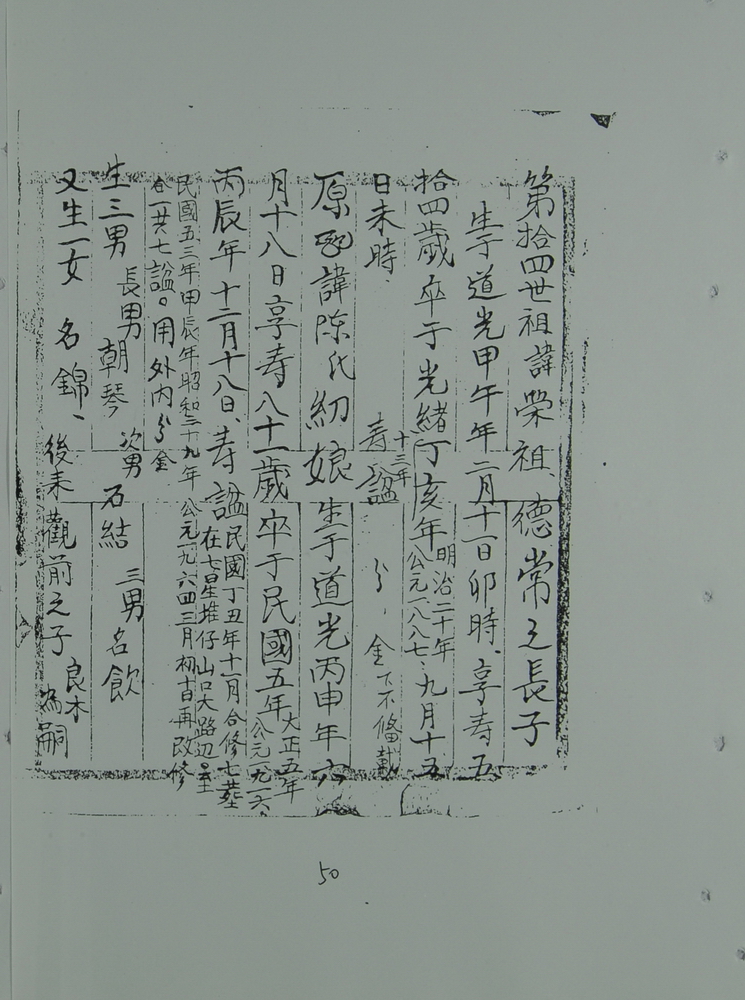 第拾四世祖諱榮祖、德常之長子
生于道光甲午年二月十一日卯時、享寿五
拾四歲卒于光緒丁亥年九月十五
十三年
明治二十年
公元一八八七、
日未時、寿諡 分、金下不俻載
原配諱陳氏紉娘生于道光丙申年六
月十八日享寿八十一歲卒于民國五年
大正五年
公元一九一六、
丙辰年十二月十八日、寿諡
民國丁丑年十一月合修七墓
在七星堆仔山口大路辺
民國五三年甲辰年昭和三十九年公元一九六四三月初十日再改修
合一共七諡。用外内分金
生三男 長男朝琴 次男石結 三男名飲
又生一女 名錦、後来觀前之子良木為嗣
50